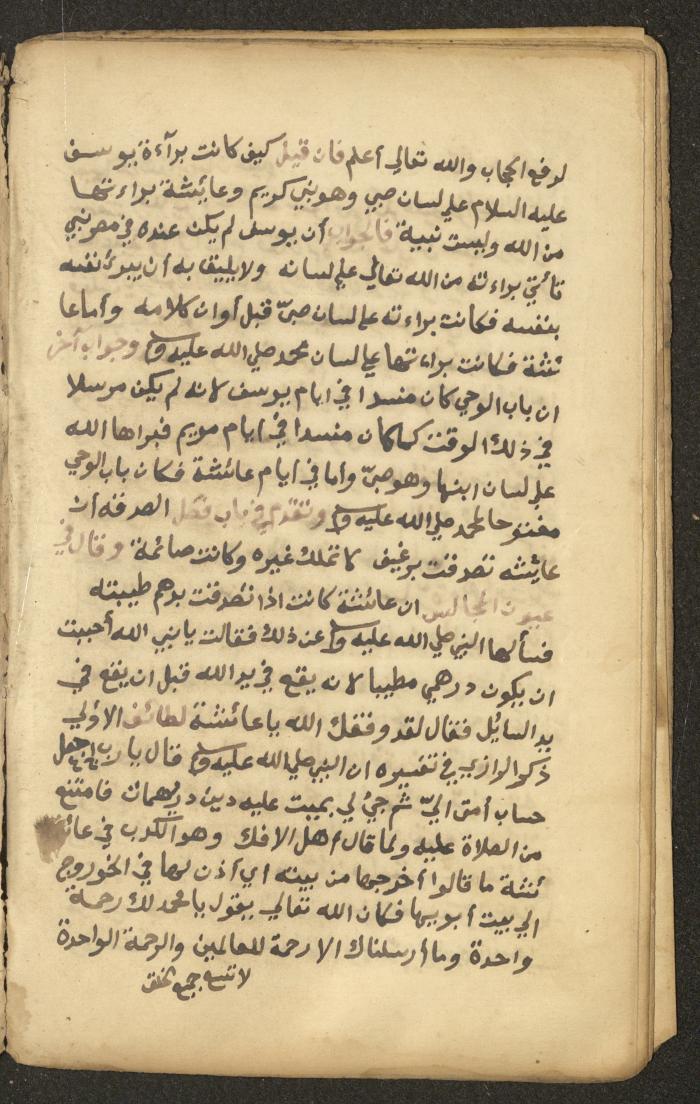 لرفع الحجاب والله تعالي أعلم فان قيل كيف كانت برآءة يوسف
عليه السلام علي لسان صبي وهو نبي كريم وعائيشة براءتها
من الله وليست نبية فالجواب أن يوسف لم يكن عنده في مصر نبي
تأتي براءته من الله تعالي علي لسانه ولا يليق به أن يبرئ نفسه
بنفسه فكانت براءته علي لسان صبيّ قبل أوان كلامه وأما عا
ئشة فكانت براءتها علي لسان محمد صلي الله عليه وجواب أخر
ان باب الوحي كان منسدا في ايام يوسف لانه لم يكن مرسلا
في ذلك الوقت كما كان منسدا في ايام مريم فبراها الله
علي لسان ابنها وهو صبيّ وأما في ايام عائشة فكان باب الوحي
مفتوحا لمحمد صلي الله عليه وتقدم في باب فضل الصدقة ان
عايشه تصدقت برغيف لا تملك غيره وكانت صائمة وقال في
عيون المجالس ان عائشة كانت اذا تصدقت بدرهم طيبته
فسألها النبي صلي الله عليه عن ذلك فقالت يا نبي الله أحببت
ان يكون درهمي مطيبا لانه يقع في يد الله قبل ان يقع في
يد السايل فقال لقد وفقك الله يا عائشة لطائف الاولي
ذكر الرازي في تفسيره ان النبي صلي الله عليه قال يا رب اجعل
حساب أمتي اليّ ثم جئ لي بميت عليه دين درهمان فامتنع
من الصلاة عليه ولما قال أهل الافك وهو الكذب في عائ
ئشة ما قالوا أخرجها من بيته اي أذن لها في الخروج
الي بيت أبويها فكان الله تعالي يقول يا محمد لك رحمة
واحدة وما أرسلناك الا رحمة للعالمين والرحمة الواحدة
لا تسع جميع الخلق